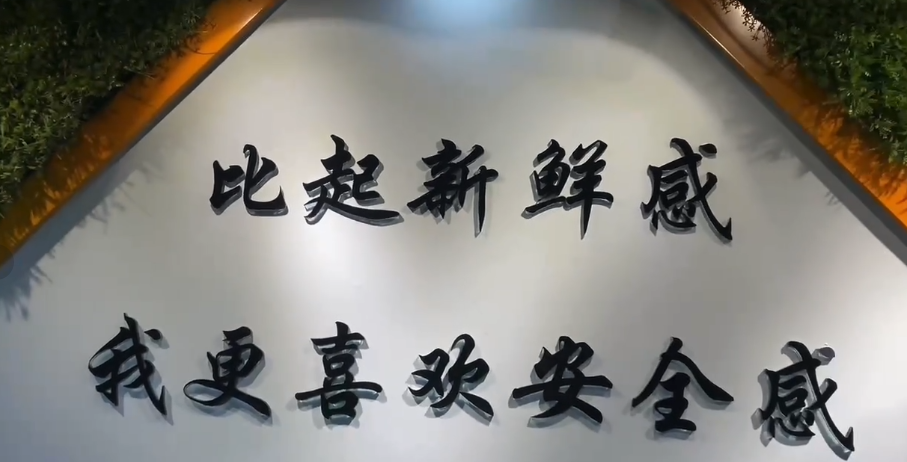 比起新鲜感
我更喜欢安全感